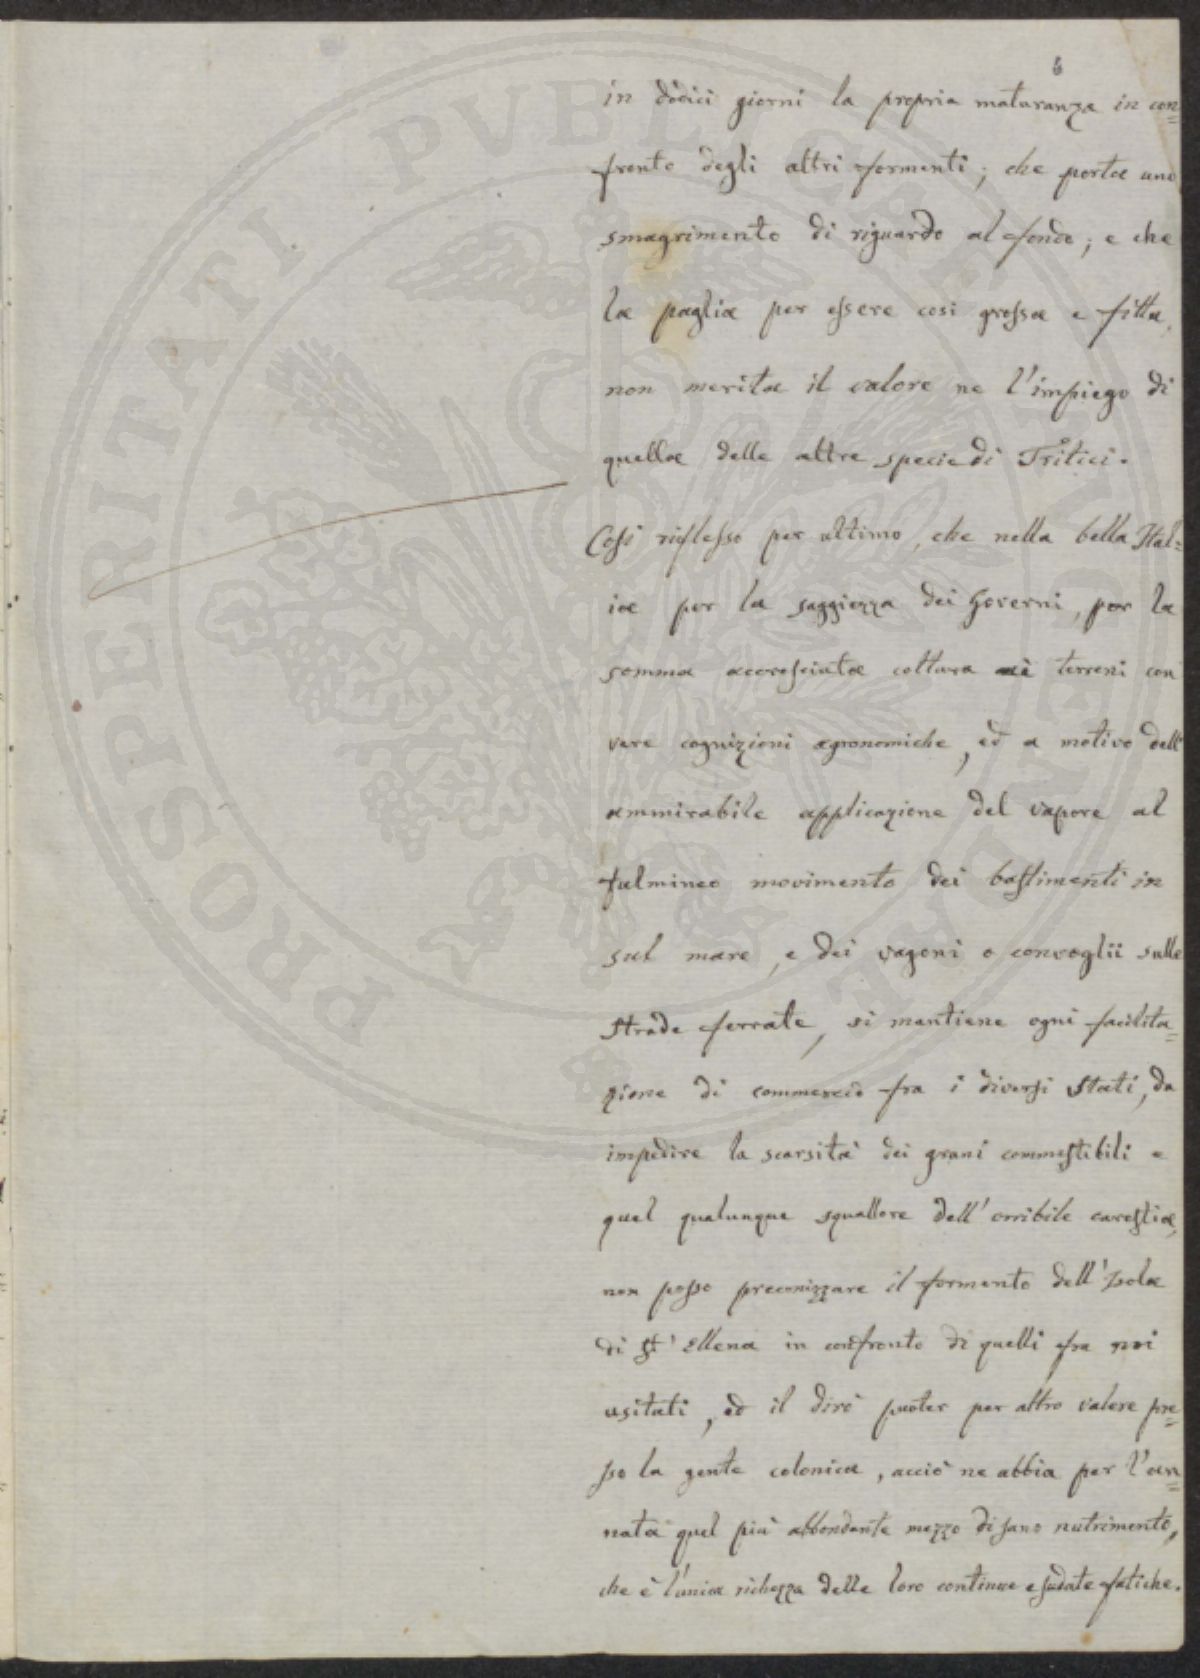 6
in dodici giorni la propria maturanza in con=
fronto degli altri formenti; che porta uno
smagrimento di riguardo al fondo; e che
la paglia per essere cosi grossa e fitta,
non merita il valore ne l'impiego di
quella delle altre specie di Tritici.
Cosi riflesso per ultimo, che nella bella Ital=
ia per la saggiezza dei Governi, per la
somma accresciuta coltura ai terreni con
vere cognizioni agronomiche, ed a motivo dell'
ammirabile applicazione del vapore al
fulmineo movimento dei bastimenti in
sul mare, e dei vagoni o convoglii sulle
strade ferrate, si mantiene ogni facilita=
zione di commercio fra i diversi Stati, da
impedire la scarsità dei grani commestibili e
quel qualunque squallore dell'orribile carestia,
non posso preconizzare il formento dell'Isola
di St' Ellena in confronto di quelli fra noi
usitati, ed il dirò puoter per altro valere pre=
sso la gente colonica, acciò ne abbia per l'an=
nata quel più abbondante mezzo di sano nutrimento,
che è l'unica richezza delle loro continue e sudate fatiche.
PROSPERITATI PUBLICAE AUGENDAE